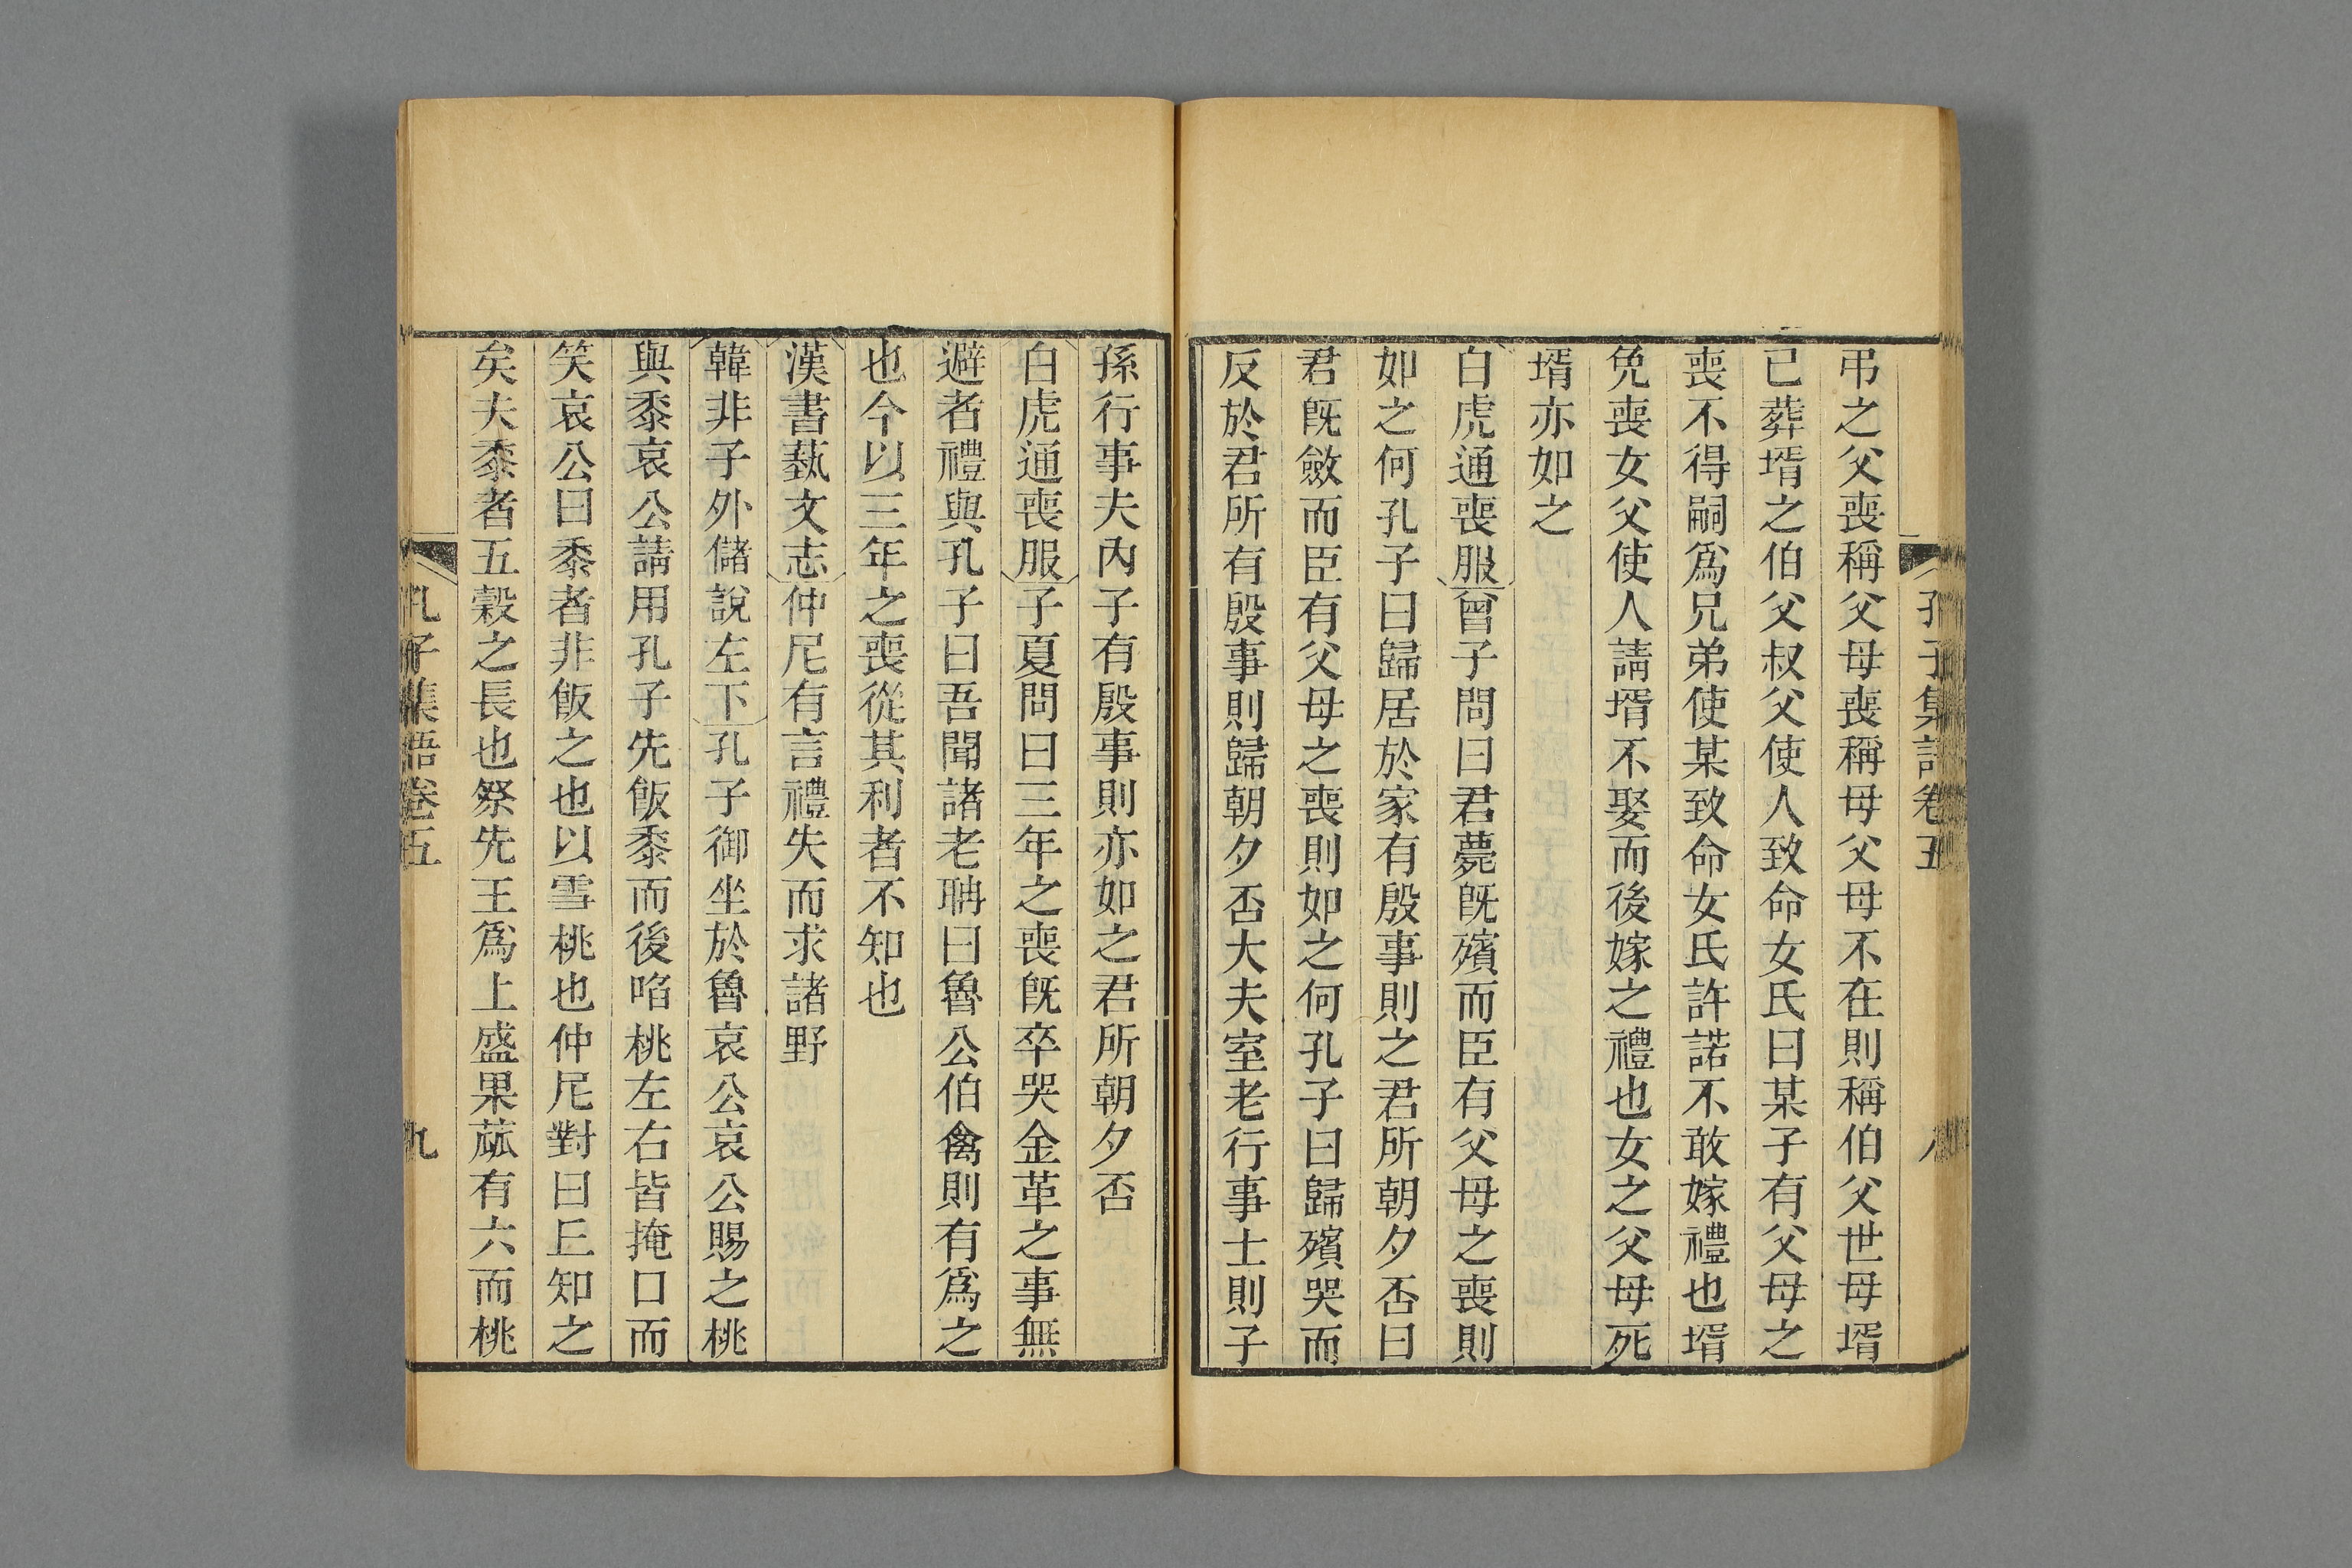 孔子集語卷五
八
弔之父喪稱父母喪稱母父母不在則稱伯父世母壻
已葬壻之伯父叔父使人致命女氏曰某子有父母之
喪不得嗣爲兄弟使某致命女氏許諾不敢嫁禮也壻
免喪女父使人請壻不娶而後嫁之禮也女之父母死
壻亦如之
白虎通喪服曾子問曰君薨旣殯而臣有父母之喪則
如之何孔子曰歸居於家有殷事則之君所朝夕否曰
君旣斂而臣有父母之喪則如之何孔子曰歸殯哭而
反於君所有殷事則歸朝夕否大夫室老行事士則子
孫行事夫內子有殷事則亦如之君所朝夕否
白虎通喪服子夏問曰三年之喪旣卒哭金革之事無
避者禮與孔子曰吾聞諸老聃曰魯公伯禽則有爲之
也今以三年之喪從其利者不知也
漢書蓺文志仲尼有言禮失而求諸野
韓非子外儲說左下孔子御坐於魯哀公哀公賜之桃
與黍哀公請用孔子先飯黍而後啗桃左右皆掩口而
笑哀公曰黍者非飯之也以雪桃也仲尼對曰丘知之
矣夫黍者五穀之長也祭先王爲上盛果蓏有六而桃
孔子集語卷五
九